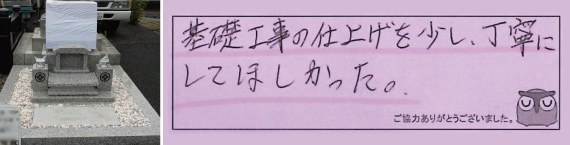 基礎工事の仕上げを少し、丁寧に
してほしかった。
ご協力ありがとうございました。